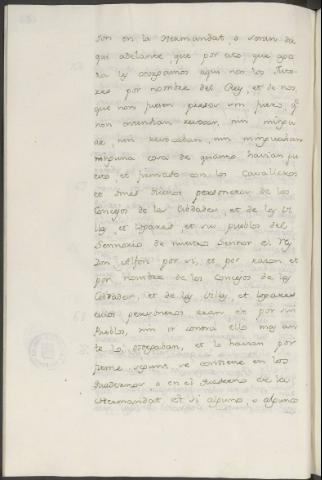 son en la Hermandat, o seran da
qui adelante, que por esto que ago
ra les otorgamos aqui nos los Tuto
res por nombre del Rey, et de nos,
que non pueda
non entendan revocar, nin mingua
de, nin revocaban, nin minguaban
ninguna cosa de quanto havian pu
esto, et firmado con los Cavalleros
et omes dichos personeros de los
Concejos de las Cibdades, et de las Vi
llas, et Logares et sus pueblos del
Sennorio de nuestro Sennor el Rey
Don Alfon por si, et por razon et
por nombre de los Concejos de las
Cibdades, et de las Villas, et Logares
cuios personeros eran, et por sus
Pueblos, nin ir contra ello mas an
te lo otorgaban, et lo havian por
firme segunt se contiene en los
Quadernos, o en el Quaderno de la
Hermandat et si alguno, o algunos